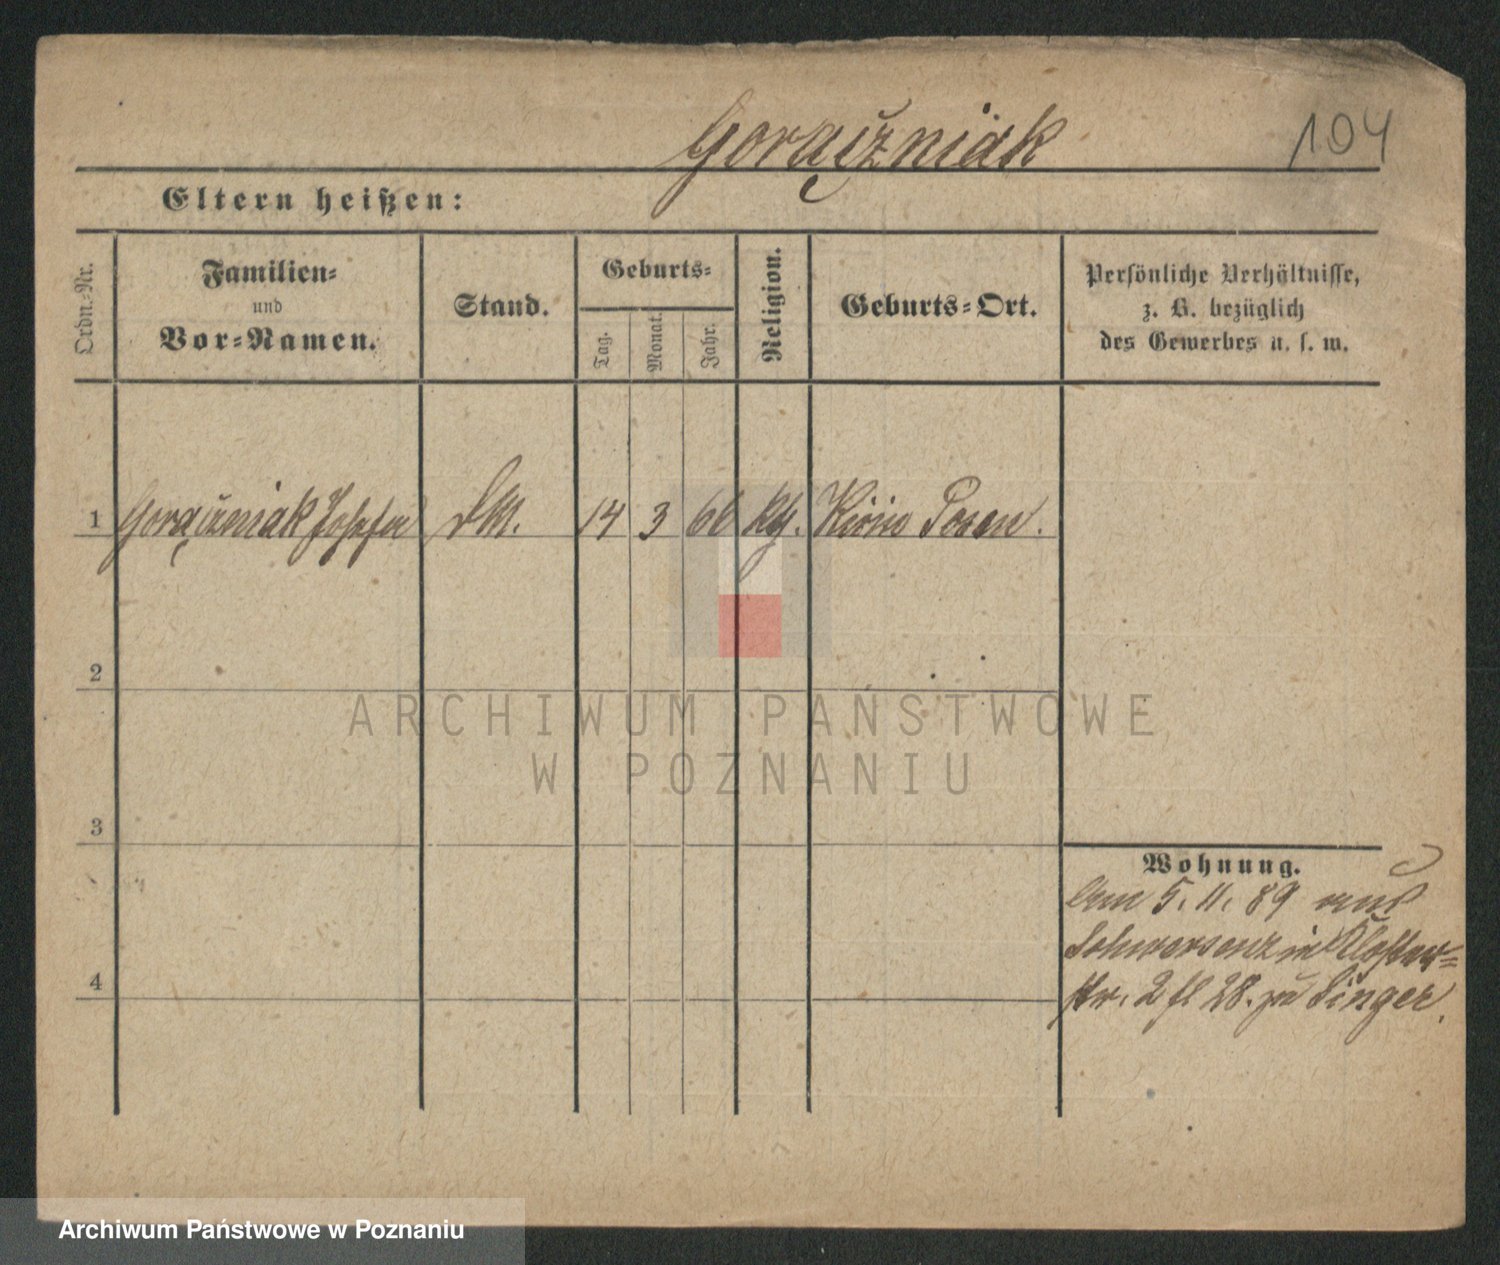 Gorączniak 104
Eltern heißen:
Ordn.-Nr.
Familien-
und
Vor-Namen.
Stand.
Geburts-
Tag.
Monat.
Jahr.
Religion.
Geburts-Ort.
Persönliche Verhältnisse,
z. B. bezüglich
des Gewerbes u. s. w.
1 Gorączniak 14 3 Posen.
2
3
4
Wohnung.
5. 11. 89 aus
Schwersenz in Kloster-
str. 2 28. zu Singer.
ARCHIWUM PAŃSTWOWE
W POZNANIU
Archiwum Państwowe w Poznaniu